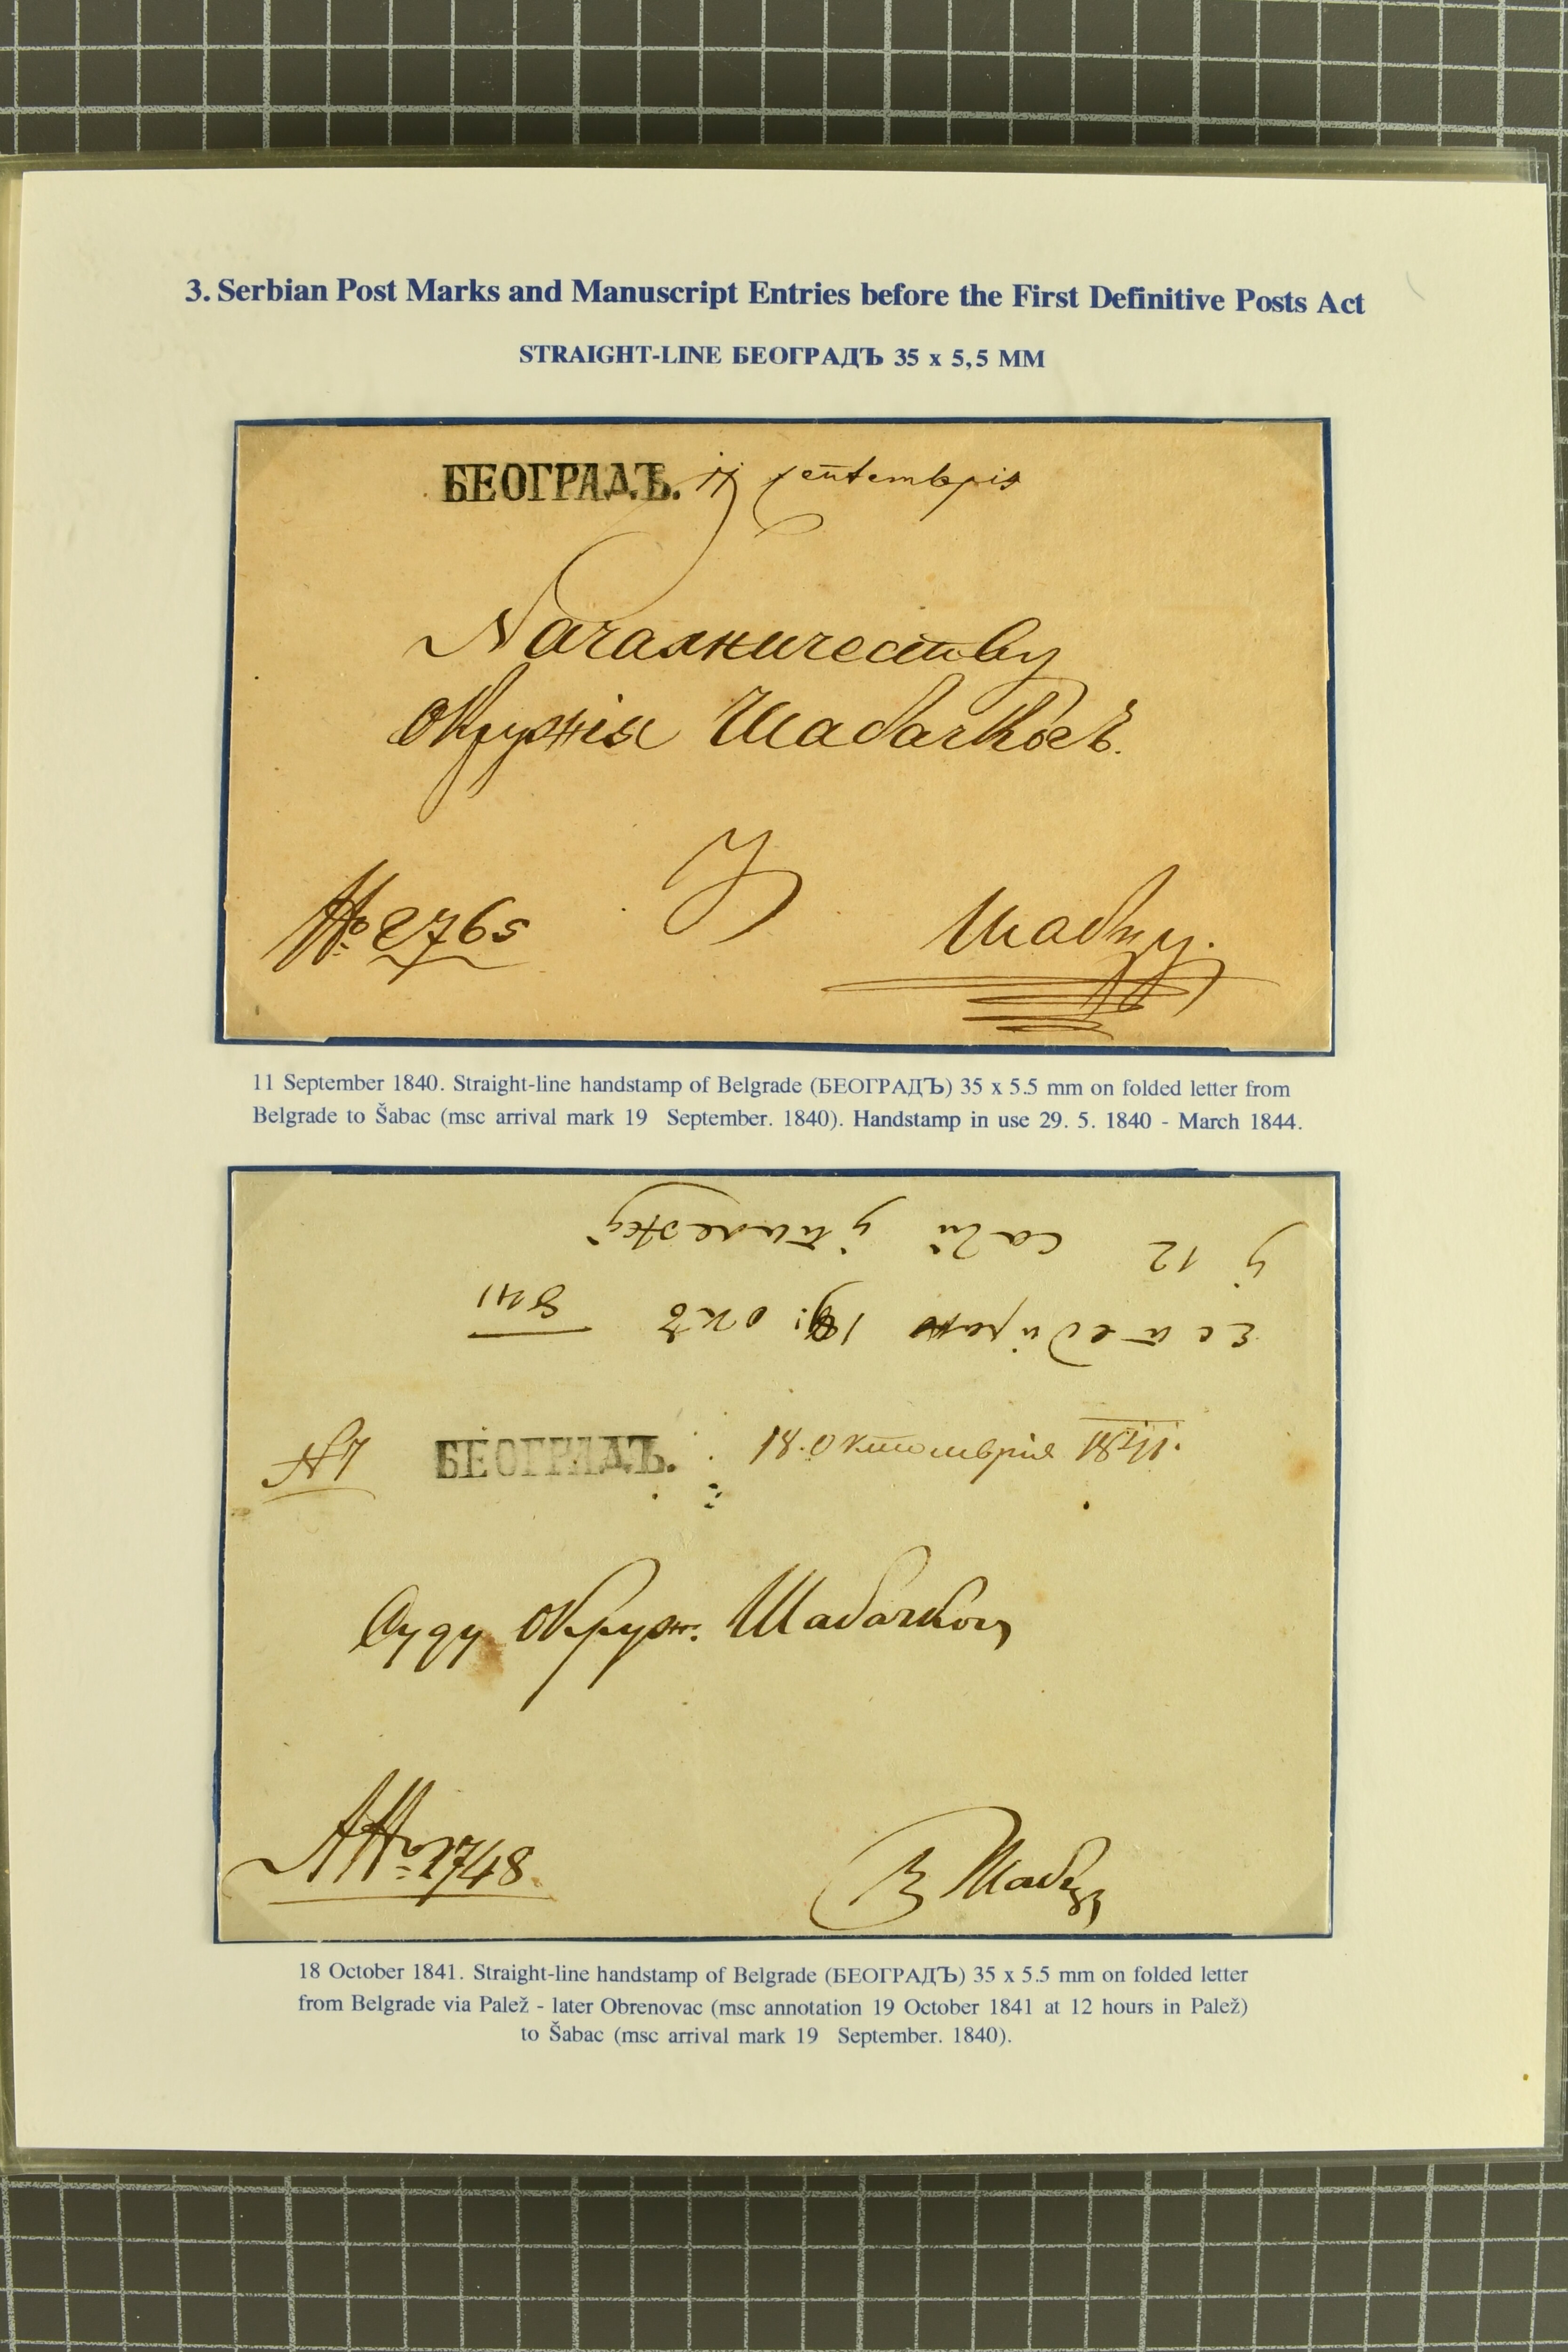 3. Serbian Post Marks and Manuscript Entries before the First Definitive Posts Act
STRAIGHT-LINE БЕОГРАДЪ 35 x 5,5 MM
БЕОГРАДЪ. 11 септемвріа
Началничеству
Окружіа Шабачкогъ.
№ 2765 У Шабцу.
11 September 1840. Straight-line handstamp of Belgrade (БЕОГРАДЪ) 35 x 5.5 mm on folded letter from
Belgrade to Šabac (msc arrival mark 19 September. 1840). Handstamp in use 29. 5. 1840 - March 1844.
у 12 сати у Палежу
841
N7 БЕОГРАДЪ. 18. Октомвріа 1841.
Суду Окруж. Шабачком
№ 1748.
У Шабцу
18 October 1841. Straight-line handstamp of Belgrade (БЕОГРАДЪ) 35 x 5.5 mm on folded letter
from Belgrade via Palež - later Obrenovac (msc annotation 19 October 1841 at 12 hours in Palež)
to Šabac (msc arrival mark 19 September. 1840).